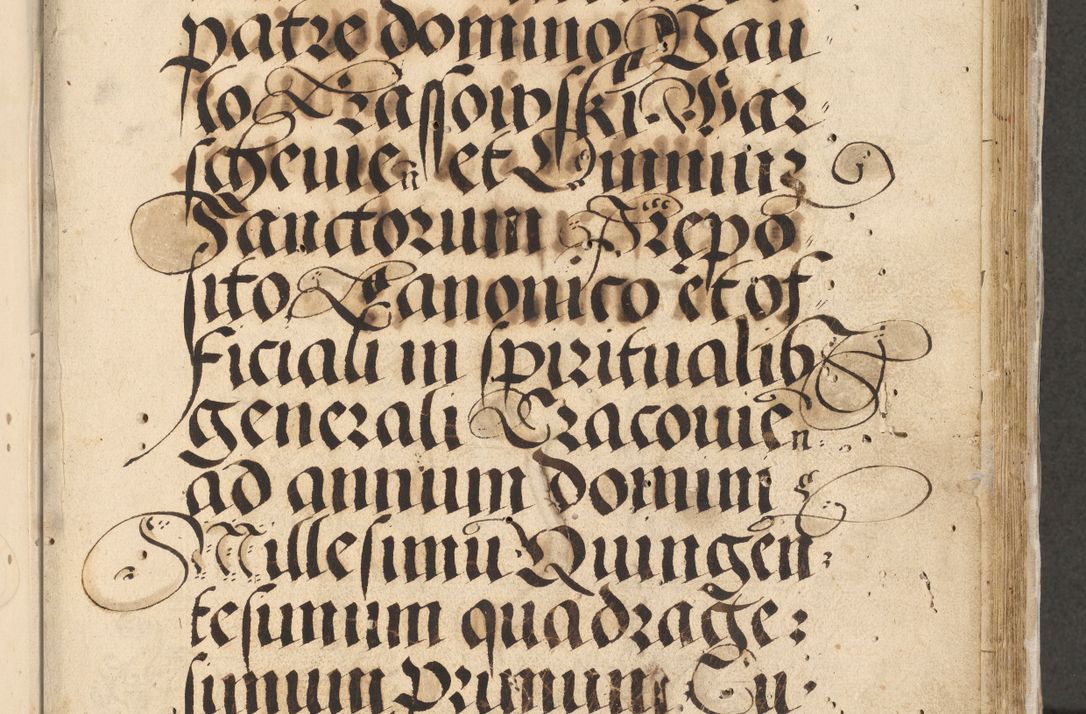 patre domino Pau
lo Drassowski. War
scheuien et Omniu
Sanctorum Prepo
sito Canonico et of
ficiali in spiritualib
generali Cracouien
ad annum domini
Millesimū Quingen:
tesimum quadrage:
simum primum. Cu